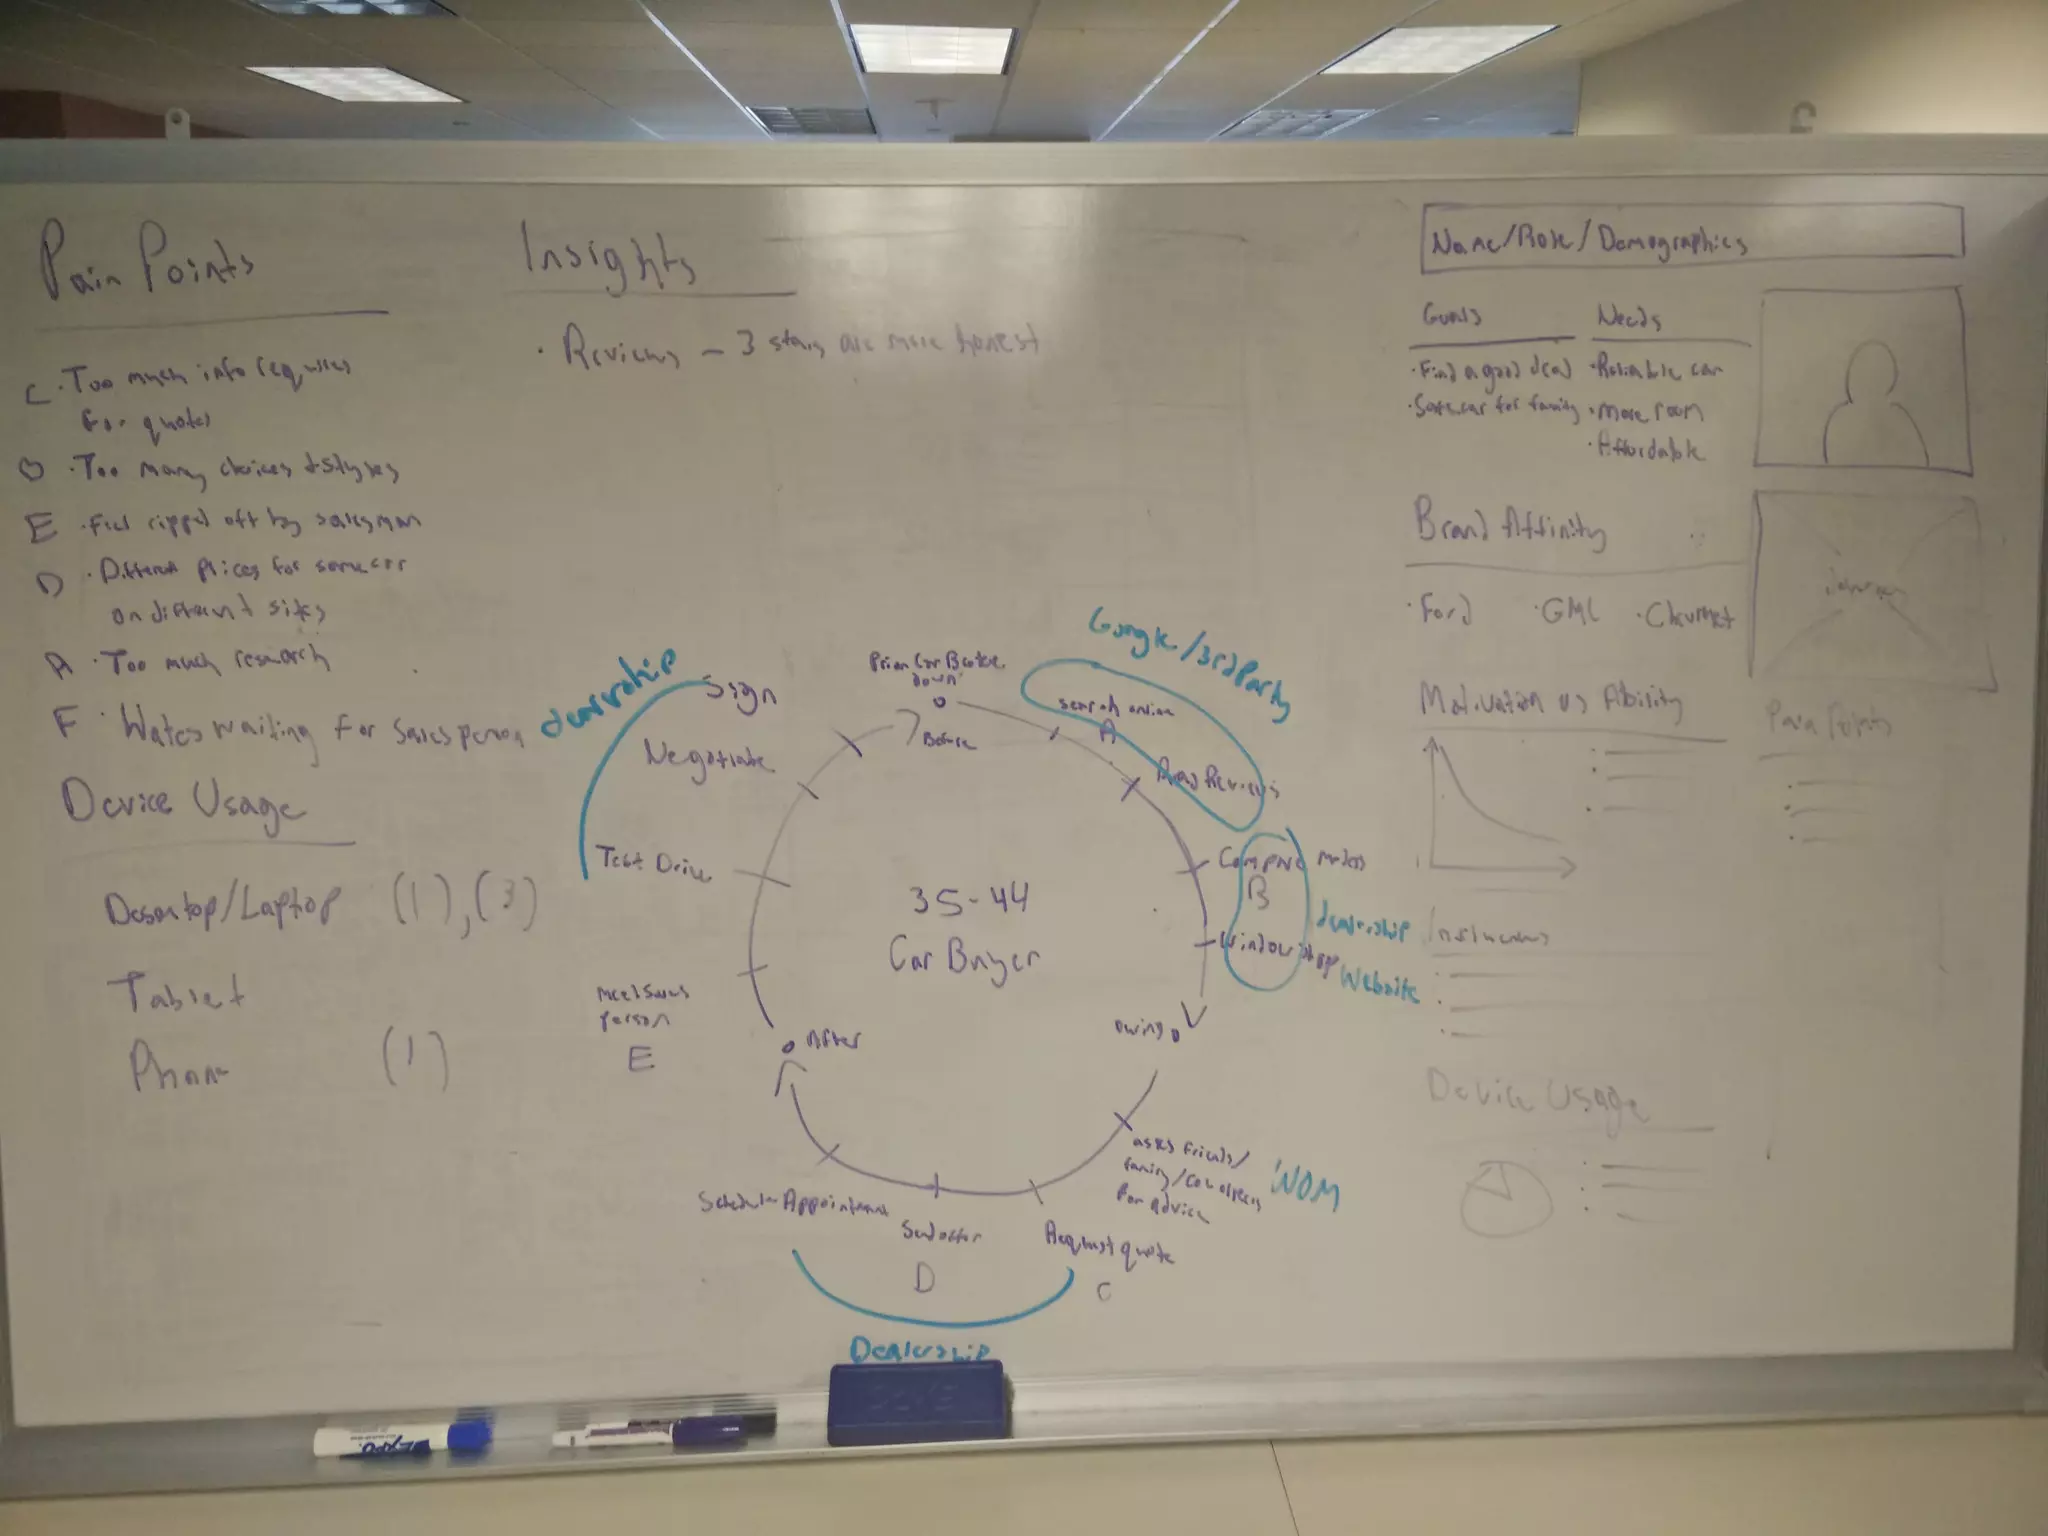 Pain Points
C · Too much info requires
for quotes
B · Too many choices + styles
E · Feel ripped off by salesman
D · Different prices for same car
on different sites
A · Too much research
F · Wastes waiting for salesperson
Device Usage
Desktop/Laptop (1), (3)
Tablet
Phone (1)
Insights
· Reviews - 3 stars are more honest
dealership
Sign
Negotiate
Test Drive
Meet Sales
person
E
Prior Car Broke
down
Before
Google/3rd Party
search online
A
Read Reviews
Compare models
B
Window shop
dealership
Website
During
asks friends/
family/coworkers
for advice
WOM
Request quote
C
D
Schedule Appointment
Dealership
After
35-44
Car Buyer
Name/Role/Demographics
Goals
· Find a good deal
· Safe car for family
Needs
· Reliable car
· More room
· Affordable
Brand Affinity
· Ford · GMC · Chevrolet
Motivation vs Ability
Pain Points
Influencers
Device Usage
EXPO